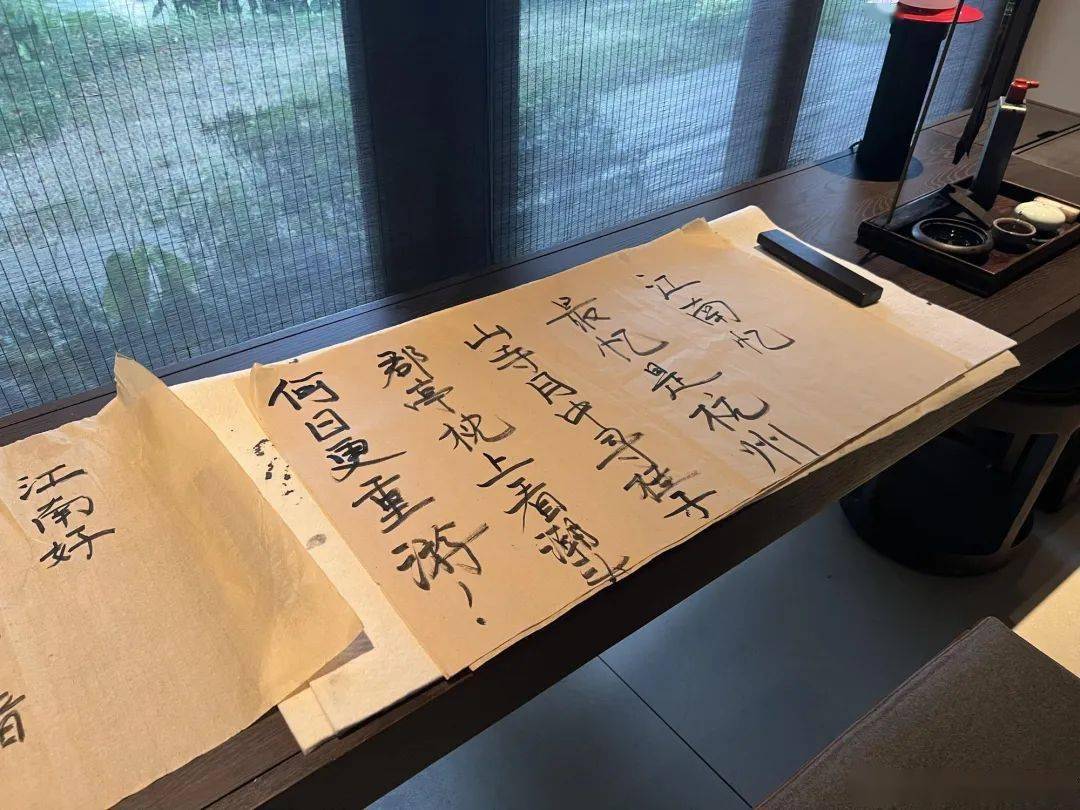 江南忆
最忆是杭州
山寺月中寻桂子
郡亭枕上看潮头
何日更重游！
江南好